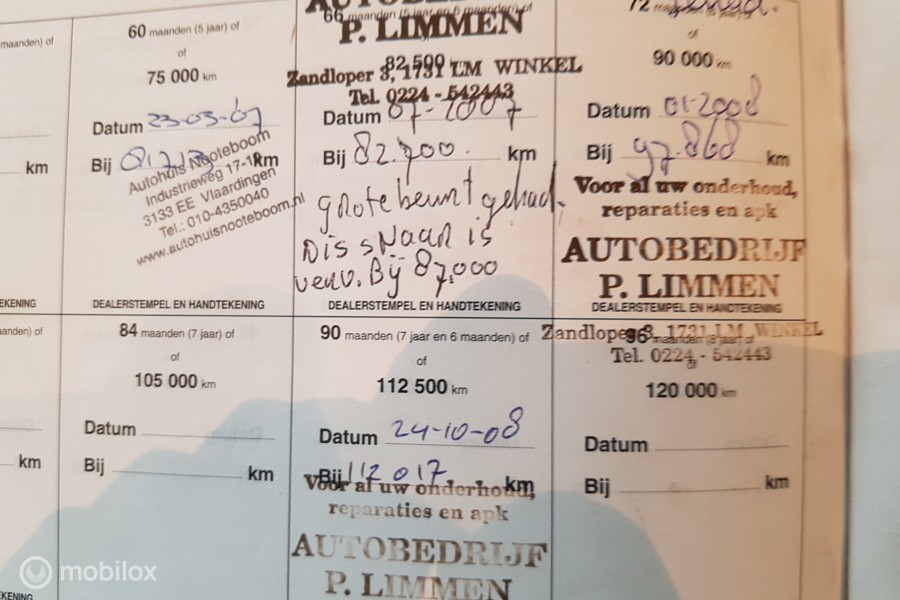 maanden) of
km
EKENING
60 maanden (5 jaar) of
of
75 000 km
Datum 23-03-07
Bij km
Autohuis Nooteboom
Industrieweg 17-19
3133 EE Vlaardingen
Tel.: 010-4350040
www.autohuisnooteboom.nl
DEALERSTEMPEL EN HANDTEKENING
AUTOBEDRIJF
66 maanden (5 jaar en 6 maanden) of
P. LIMMEN
82 500 km
Zandloper 3, 1731 LM WINKEL
Tel. 0224 - 542443
Datum 07-2007
Bij 82.700. km
grote beurt gehad.
Dis snaar is
verv. Bij 87.000
DEALERSTEMPEL EN HANDTEKENING
72
of
90 000 km
Datum 01-2008
Bij 97.868 km
Voor al uw onderhoud,
reparaties en apk
AUTOBEDRIJF
P. LIMMEN
DEALERSTEMPEL EN HANDTEKENING
Zandloper 3, 1731 LM WINKEL
Tel. 0224 - 542443
anden) of
km
EKENING
84 maanden (7 jaar) of
of
105 000 km
Datum
Bij km
90 maanden (7 jaar en 6 maanden) of
of
112 500 km
Datum 24-10-08
Bij 112017 km
Voor al uw onderhoud,
reparaties en apk
AUTOBEDRIJF
P. LIMMEN
96 maanden (8 jaar) of
of
120 000 km
Datum
Bij km
mobilox